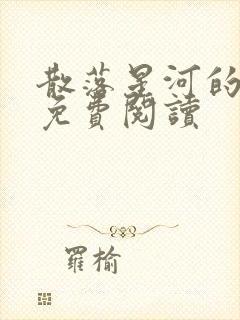 散落星河的
免費閱讀
羅榆